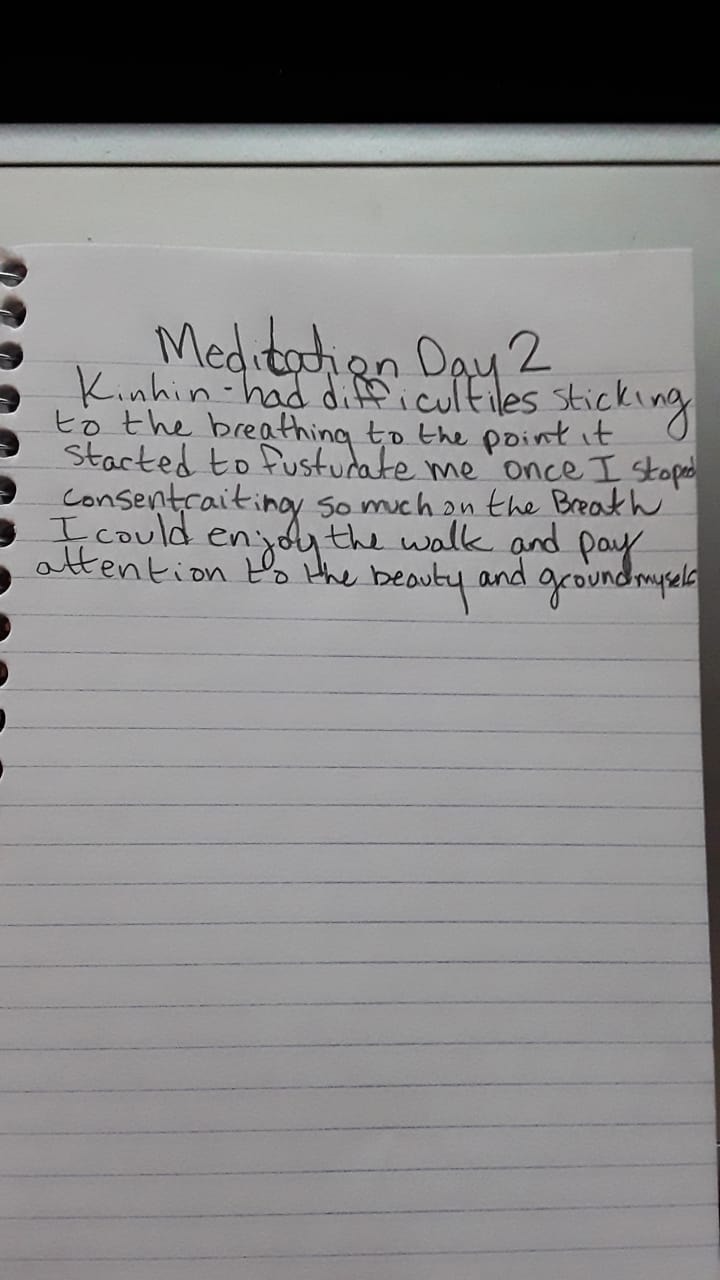 Meditation Day 2
Kinhin - had difficultiles sticking
to the breathing to the point it
started to fusturate me once I stoped
consentraiting so much on the Breath
I could enjoy the walk and pay
attention to the beauty and ground myself